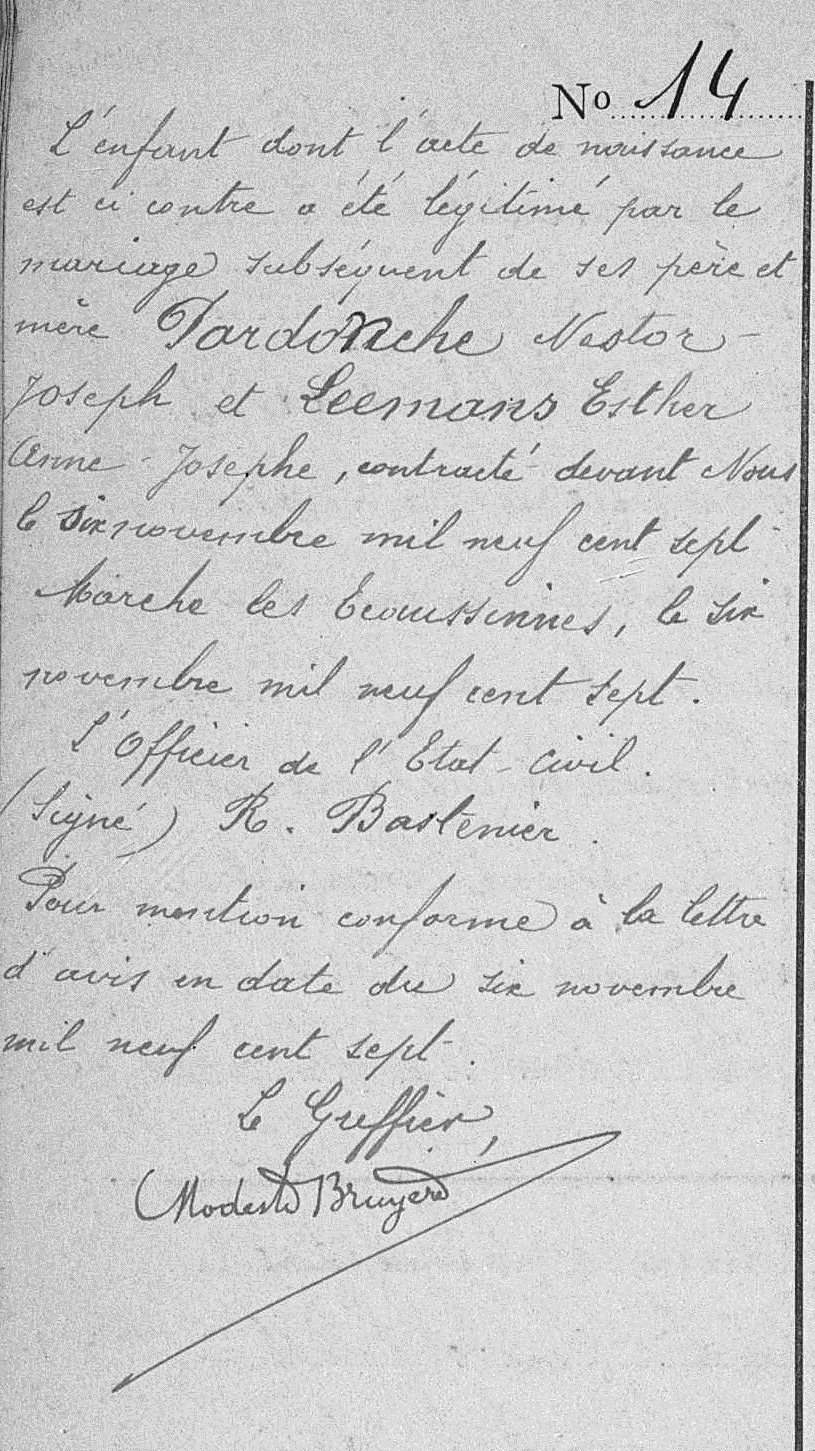 No 14
L'enfant dont l'acte de naissance
est ci contre a été légitimé par le
mariage subséquent de ses père et
mère Pardonche Nestor-
Joseph et Leemans Esther
Anne-Josephe, contracté devant Nous
le six novembre mil neuf cent sept
Marche lez Ecaussinnes, le six
novembre mil neuf cent sept.
L'Officier de l'Etat-Civil.
(Signé) R. Bastenier.
Pour mention conforme à la lettre
d'avis en date du six novembre
mil neuf cent sept.
Le Greffier,
Modeste Bruyere